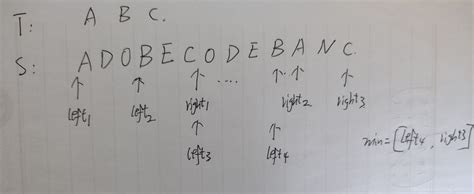 T: A B C.
S: A D O B E C O D E B A N C.
left1 left2 right1 .... right2 right3
left3 left4 min=[left4, right3]